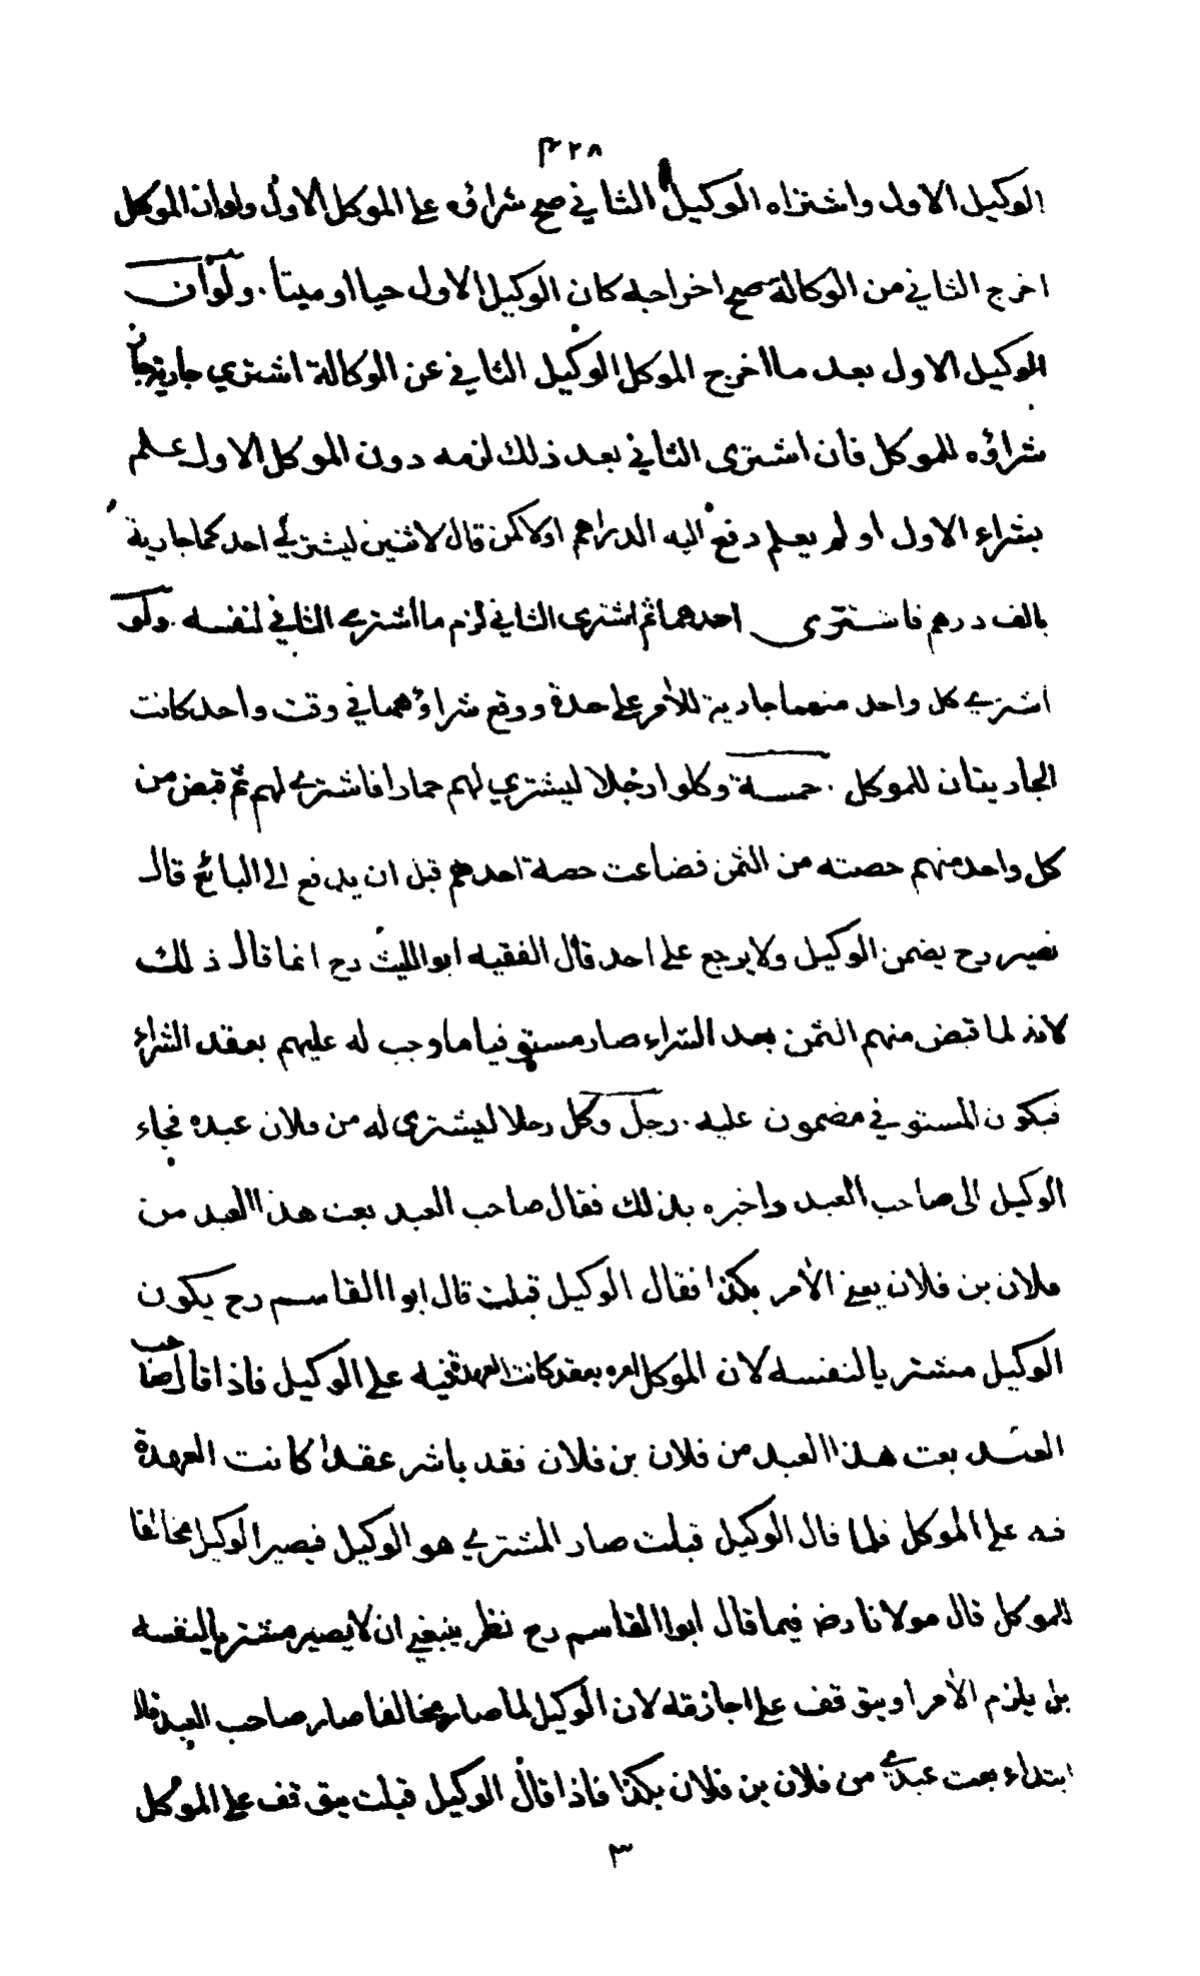 ٤٢٨
الوكيل الاول واشتراه الوكيل الثاني صح شراؤه على الموكل الاول ولو ان الموكل
اخرج الثاني من الوكالة صح اخراجه كان الوكيل الاول حيا او ميتا . ولو ان
الوكيل الاول بعد ما اخرج الموكل الوكيل الثاني عن الوكالة اشتري جارية جاز
شراؤه للموكل فان اشترى الثاني بعد ذلك لزمه دون الموكل الاول علم
بشراء الاول او لم يعلم دفع اليه الدراهم اولا كمن قال لاثنين ليشتري احدكما جارية
بالف درهم فاشترى احدهما ثم اشترى الثاني لزم ما اشترى الثاني لنفسه . ولو
اشترى كل واحد منهما جارية للآمر على حدة ووقع شراؤهما في وقت واحد كانت
الجاريتان للموكل . خمسة وكلوا رجلا ليشتري لهم حمارا فاشترى لهم ثم قبض من
كل واحد منهم حصته من الثمن فضاعت حصة احدهم قبل ان يدفع الى البائع قال
نصير رح يضمن الوكيل ولا يرجع على احد قال الفقيه ابو الليث رح انما قال ذلك
لانه لما قبض منهم الثمن بعد الشراء صار مستوفيا ما وجب له عليهم بعقد الشراء
فيكون المستوفي مضمون عليه . رجل وكل رجلا ليشترى له من فلان عبده فجاء
الوكيل الى صاحب العبد واخبره بذلك فقال صاحب العبد بعت هذا العبد من
فلان بن فلان يعني الآمر بكذا فقال الوكيل قبلت قال ابو القاسم رح يكون
الوكيل مشتريا لنفسه لان الموكل امره بعقد كانت العهدة فيه على الوكيل فاذا قال صاحب
العبد بعت هذا العبد من فلان بن فلان فقد باشر عقدا كانت العهدة
فيه على الموكل فلما قال الوكيل قبلت صار المشتري هو الوكيل فيصير الوكيل مخالفا
للموكل قال مولانا رض فيما قال ابو القاسم رح نظر ينبغي ان لا يصير مشتريا لنفسه
بل يلزم الآمر او يتوقف على اجازته لان الوكيل لما صار مخالفا صار صاحب العبد قائلا
ابتداء بعت عبدي من فلان بن فلان بكذا فاذا قال الوكيل قبلت يتوقف على الموكل
٣